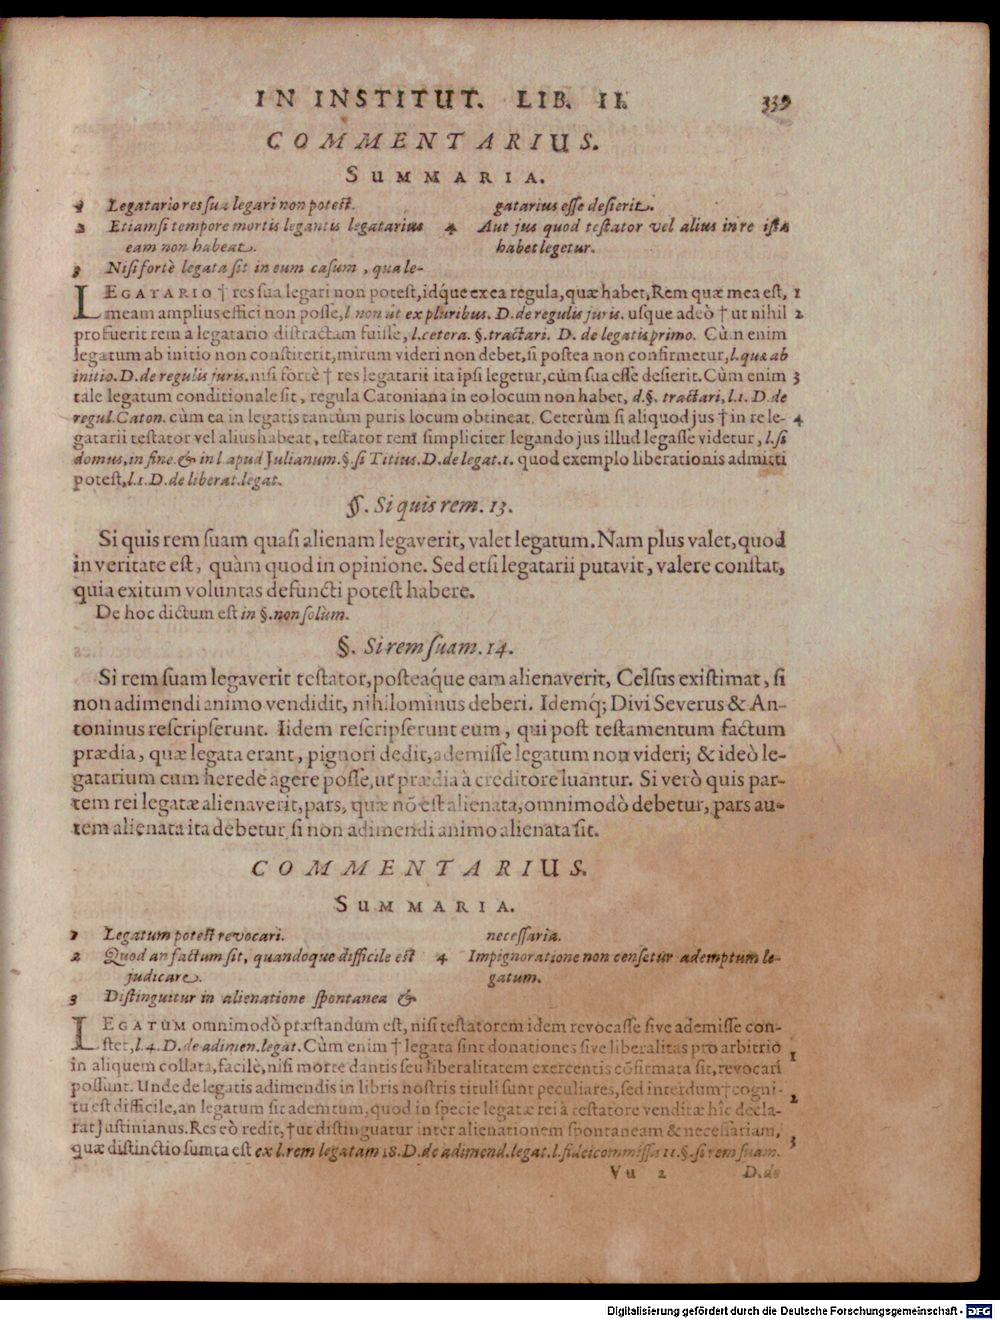 IN INSTITUT. LIB. II. 339
COMMENTARIUS.
SUMMARIA.
1 Legatario res sua legari non potest.
2 Etiamsi tempore mortis legantis legatarius
eam non habeat.
3 Nisi fortè legata sit in eum casum, qua le-
gatarius esse desierit.
4 Aut jus quod testator vel alius in re ista
habet legetur.
LEGATARIO † res sua legari non potest, idque ex ea regula, quæ habet, Rem quæ mea est, 1
meam amplius effici non posse, l non ut ex pluribus. D. de regulis juris. usque adeò † ut nihil 2
profuerit rem a legatario distractam fuisse, l. cetera. §. tractari. D. de legatis primo. Cùm enim
legatum ab initio non constiterit, mirum videri non debet, si postea non confirmetur, l. quæ ab
initio. D. de regulis juris. nisi fortè † res legatarii ita ipsi legetur, cùm sua esse desierit. Cùm enim 3
tale legatum conditionale sit, regula Catoniana in eo locum non habet, d. §. tractari, l. 1. D. de
regul. Caton. cùm ea in legatis tantùm puris locum obtineat. Ceterùm si aliquod jus † in re le- 4
gatarii testator vel alius habeat, testator rem simpliciter legando jus illud legasse videtur, l. si
domus, in fine. & in l apud Julianum. §. si Titius. D. de legat. 1. quod exemplo liberationis admitti
potest, l. 1. D. de liberat. legat.
§. Si quis rem. 13.
Si quis rem suam quasi alienam legaverit, valet legatum. Nam plus valet, quod
in veritate est, quàm quod in opinione. Sed etsi legatarii putavit, valere constat,
quia exitum voluntas defuncti potest habere.
De hoc dictum est in §. non solùm.
§. Si rem suam. 14.
Si rem suam legaverit testator, posteáque eam alienaverit, Celsus existimat, si
non adimendi animo vendidit, nihilominus deberi. Idemq; Divi Severus & An-
toninus rescripserunt. Iidem rescripserunt eum, qui post testamentum factum
prædia, quæ legata erant, pignori dedit, ademisse legatum non videri; & ideò le-
gatarium cum herede agere posse, ut prædia à creditore luantur. Si verò quis par-
tem rei legatæ alienaverit, pars, quæ nõ est alienata, omnimodò debetur, pars au-
tem alienata ita debetur si non adimendi animo alienata sit.
COMMENTARIUS.
SUMMARIA.
1 Legatum potest revocari.
2 Quod an factum sit, quandoque difficile est
judicare.
3 Distinguitur in alienatione spontanea &
necessaria.
4 Impignoratione non censetur ademptum le-
gatum.
LEGATUM omnimodò præstandum est, nisi testatorem idem revocasse sive ademisse con-
stet, l. 4. D. de adimen. legat. Cùm enim † legata sint donationes sive liberalitas pro arbitrio 1
in aliquem collata, facilè, nisi morte dantis seu liberalitatem exercentis cõfirmata sit, revocari
possunt. Unde de legatis adimendis in libris nostris tituli sunt peculiares, sed interdum † cogni- 2
tu est difficile, an legatum sit ademtum, quod in specie legatæ rei à testatore venditæ hîc decla-
rat Justinianus. Res eò redit, † ut distinguatur inter alienationem spontaneam & necessariam, 3
quæ distinctio sumta est ex l. rem legatam 18. D. de adimend. legat. l. fideicommissa 11. §. si rem suam.
Vu 2 D. de
Digitalisierung gefördert durch die Deutsche Forschungsgemeinschaft - DFG